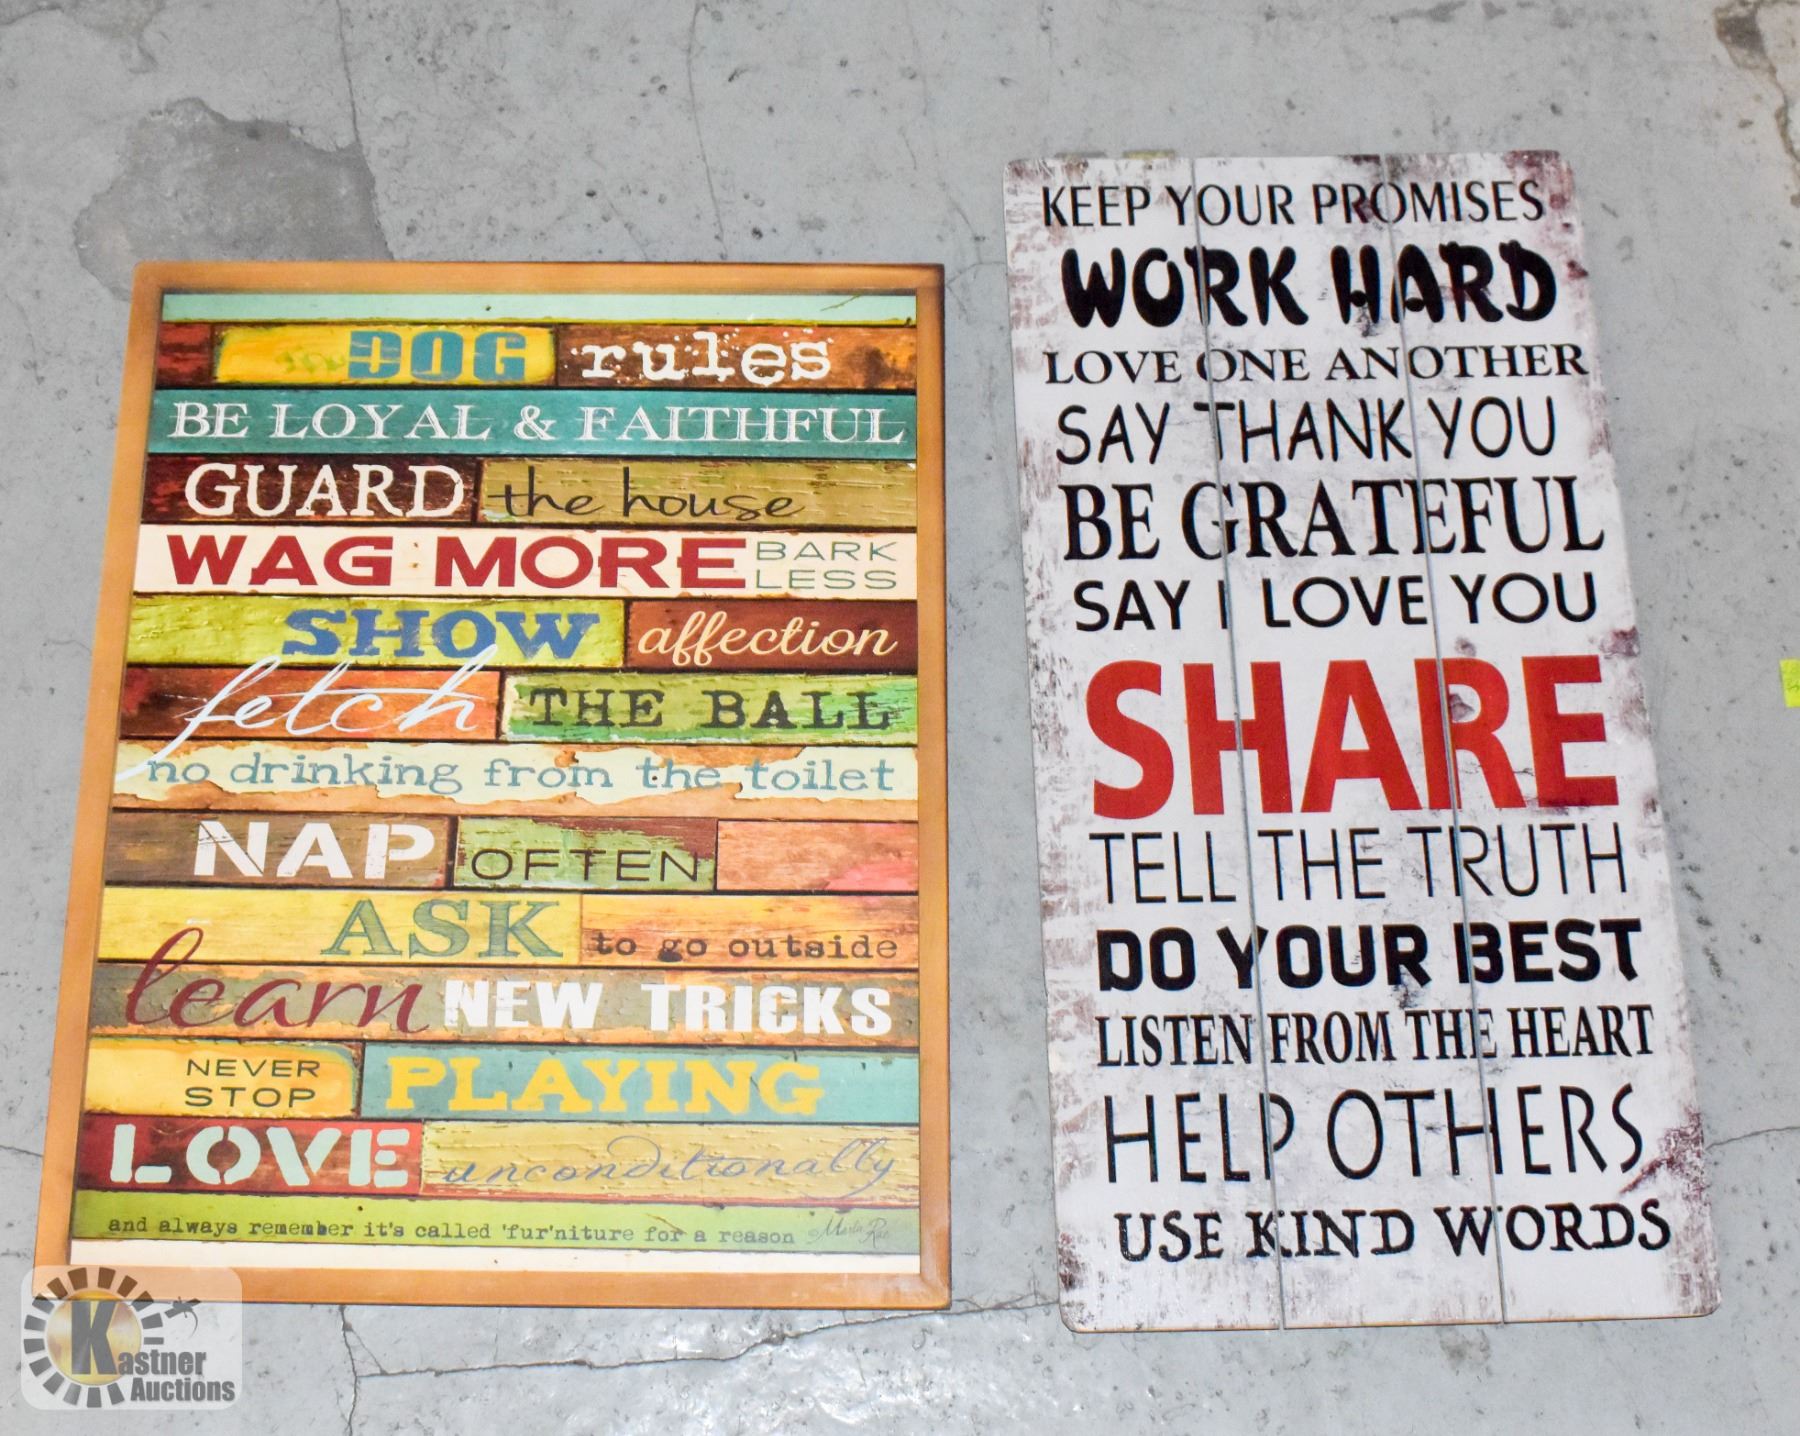 DOG rules
BE LOYAL & FAITHFUL
GUARD the house
WAG MORE BARK LESS
SHOW affection
fetch THE BALL
no drinking from the toilet
NAP OFTEN
ASK to go outside
learn NEW TRICKS
NEVER STOP PLAYING
LOVE unconditionally
and always remember it's called 'fur'niture for a reason
Marla Rae
KEEP YOUR PROMISES
WORK HARD
LOVE ONE ANOTHER
SAY THANK YOU
BE GRATEFUL
SAY I LOVE YOU
SHARE
TELL THE TRUTH
DO YOUR BEST
LISTEN FROM THE HEART
HELP OTHERS
USE KIND WORDS
Kastner
Auctions